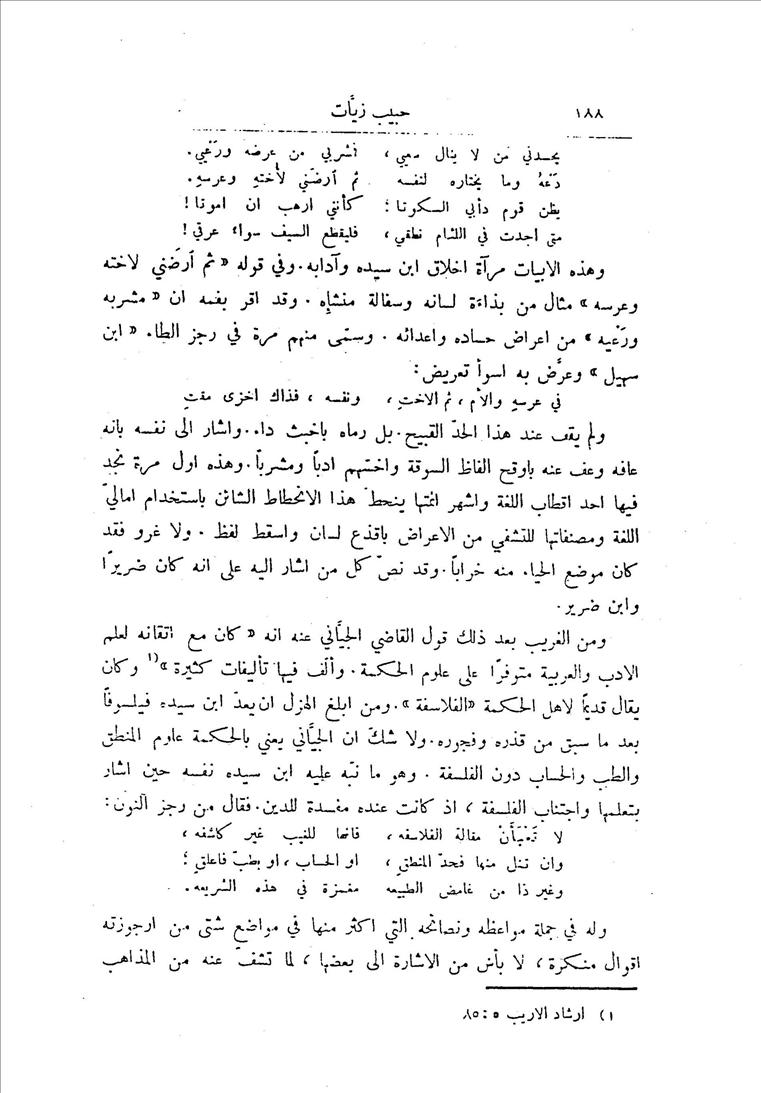 ١٨٨ حبيب زيَّات
يحسدني من لا ينال سعيي، أشربي من عرضه ورَعْيي.
دَعْهُ وما يختاره لنفسه ثم أرضَني لأختهِ وعرسهِ.
يظن قوم دأبي السكوتا؛ كأنني ارهب ان اموتا!
متى اجدت في اللئام نطقي، فليقطع السيف سواء عرقي!
وهذه الابيات مرآة اخلاق ابن سيده وآدابه. وفي قوله «ثم أرضَني لاخته
وعرسه» مثال من بذاءة لسانه وسفالة منشإه. وقد اقر بفمه ان «مشربه
ورَعْيه» من اعراض حساده واعدائه. وسمّى منهم مرة في رجز الطاء «ابن
سهيل» وعرَّض به اسوأ تعريض:
في عرسهِ والأم، ثم الاختِ، ونفسه، فذاك اخزى مقتِ
ولم يقف عند هذا الحدّ القبيح. بل رماه باخبث داء. واشار الى نفسه بانه
عافه وعف عنه باوقح الفاظ السوقة واخسّهم ادباً ومشرباً. وهذه اول مرة نجد
فيها احد اقطاب اللغة واشهر ائمتها ينحطّ هذا الانحطاط الشائن باستخدام اماليّ
اللغة ومصنفاتها للتشفي من الاعراض باقذع لسان واسقط لفظ. ولا غرو فقد
كان موضع الحياء منه خراباً. وقد نصّ كل من اشار اليه على انه كان ضريرًا
وابن ضرير.
ومن الغريب بعد ذلك قول القاضي الجيَّاني عنه انه «كان مع اتقانه لعلم
الادب والعربية متوفرًا على علوم الحكمة. وألَّف فيها تأليفات كثيرة»١) وكان
يقال قديمًا لاهل الحكمة «الفلاسفة». ومن ابلغ الهزل ان يعدّ ابن سيده فيلسوفًا
بعد ما سبق من قذره وفجوره. ولا شكّ ان الجيَّاني يعني بالحكمة علوم المنطق
والطب والحساب دون الفلسفة. وهو ما نبّه عليه ابن سيده نفسه حين اشار
بتعلمها واجتناب الفلسفة، اذ كانت عنده مفسدة للدين. فقال من رجز النون:
لا مقالة الفلاسفه، فانها للغيب غير كاشفه،
وان تنل منها فحدّ المنطقِ، او الحساب، او بطبّ فاعلقِ؛
وغير ذا من غامض الطبيعه مغمزة في هذه الشريعه.
وله في جملة مواعظه ونصائحه التي اكثر منها في مواضع شتى من ارجوزته
اقوال منكرة، لا بأس من الاشارة الى بعضها، لما تشفّ عنه من المذاهب
١) ارشاد الاريب ٥: ٨٥